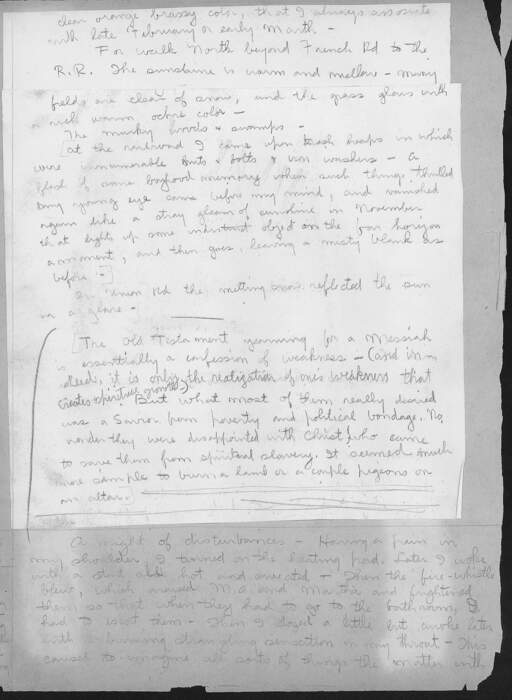 clear orange brassy color, that I always associate
with late February or early March -
For walk North beyond French Rd to the
R.R. The sunshine is warm and mellow - many
fields are clear of snow, and the grass glows with
a rich warm ochre color -
The murky woods & swamps -
[at the railroad I came upon trash heaps in which
were innumerable nuts & bolts & iron washers - A
flash of some boyhood memory when such things thrilled
my young eye came before my mind, and vanished
again like a stray gleam of sunshine in November
that lights up some object on the far horizon
a moment, and then goes, leaving a misty blank as
before -]
Rd the melting snow reflected the sun
in a glare -
[The Old Testament yearning for a Messiah
is essentially a confession of weakness - (and in-
deed, it is only the realization of one's weakness that
creates spiritual growth). But what most of them really desired
was a Savior from poverty and political bondage. No
wonder they were disappointed with Christ, who came
to save them from spiritual slavery. It seemed much
more simple to burn a lamb or a couple pigeons on
an altar.]
A night of disturbances - Having a pain in
my shoulder, I turned on the heating pad. Later I woke
with a start all hot and - Then the fire-whistle
blew, which aroused M.A. and Martha and frightened
them so that when they had to go to the bathroom, I
had to them - Then I dozed a little but awoke later
with a burning strangling sensation in my throat - This
caused to imagine all sorts of things the matter with